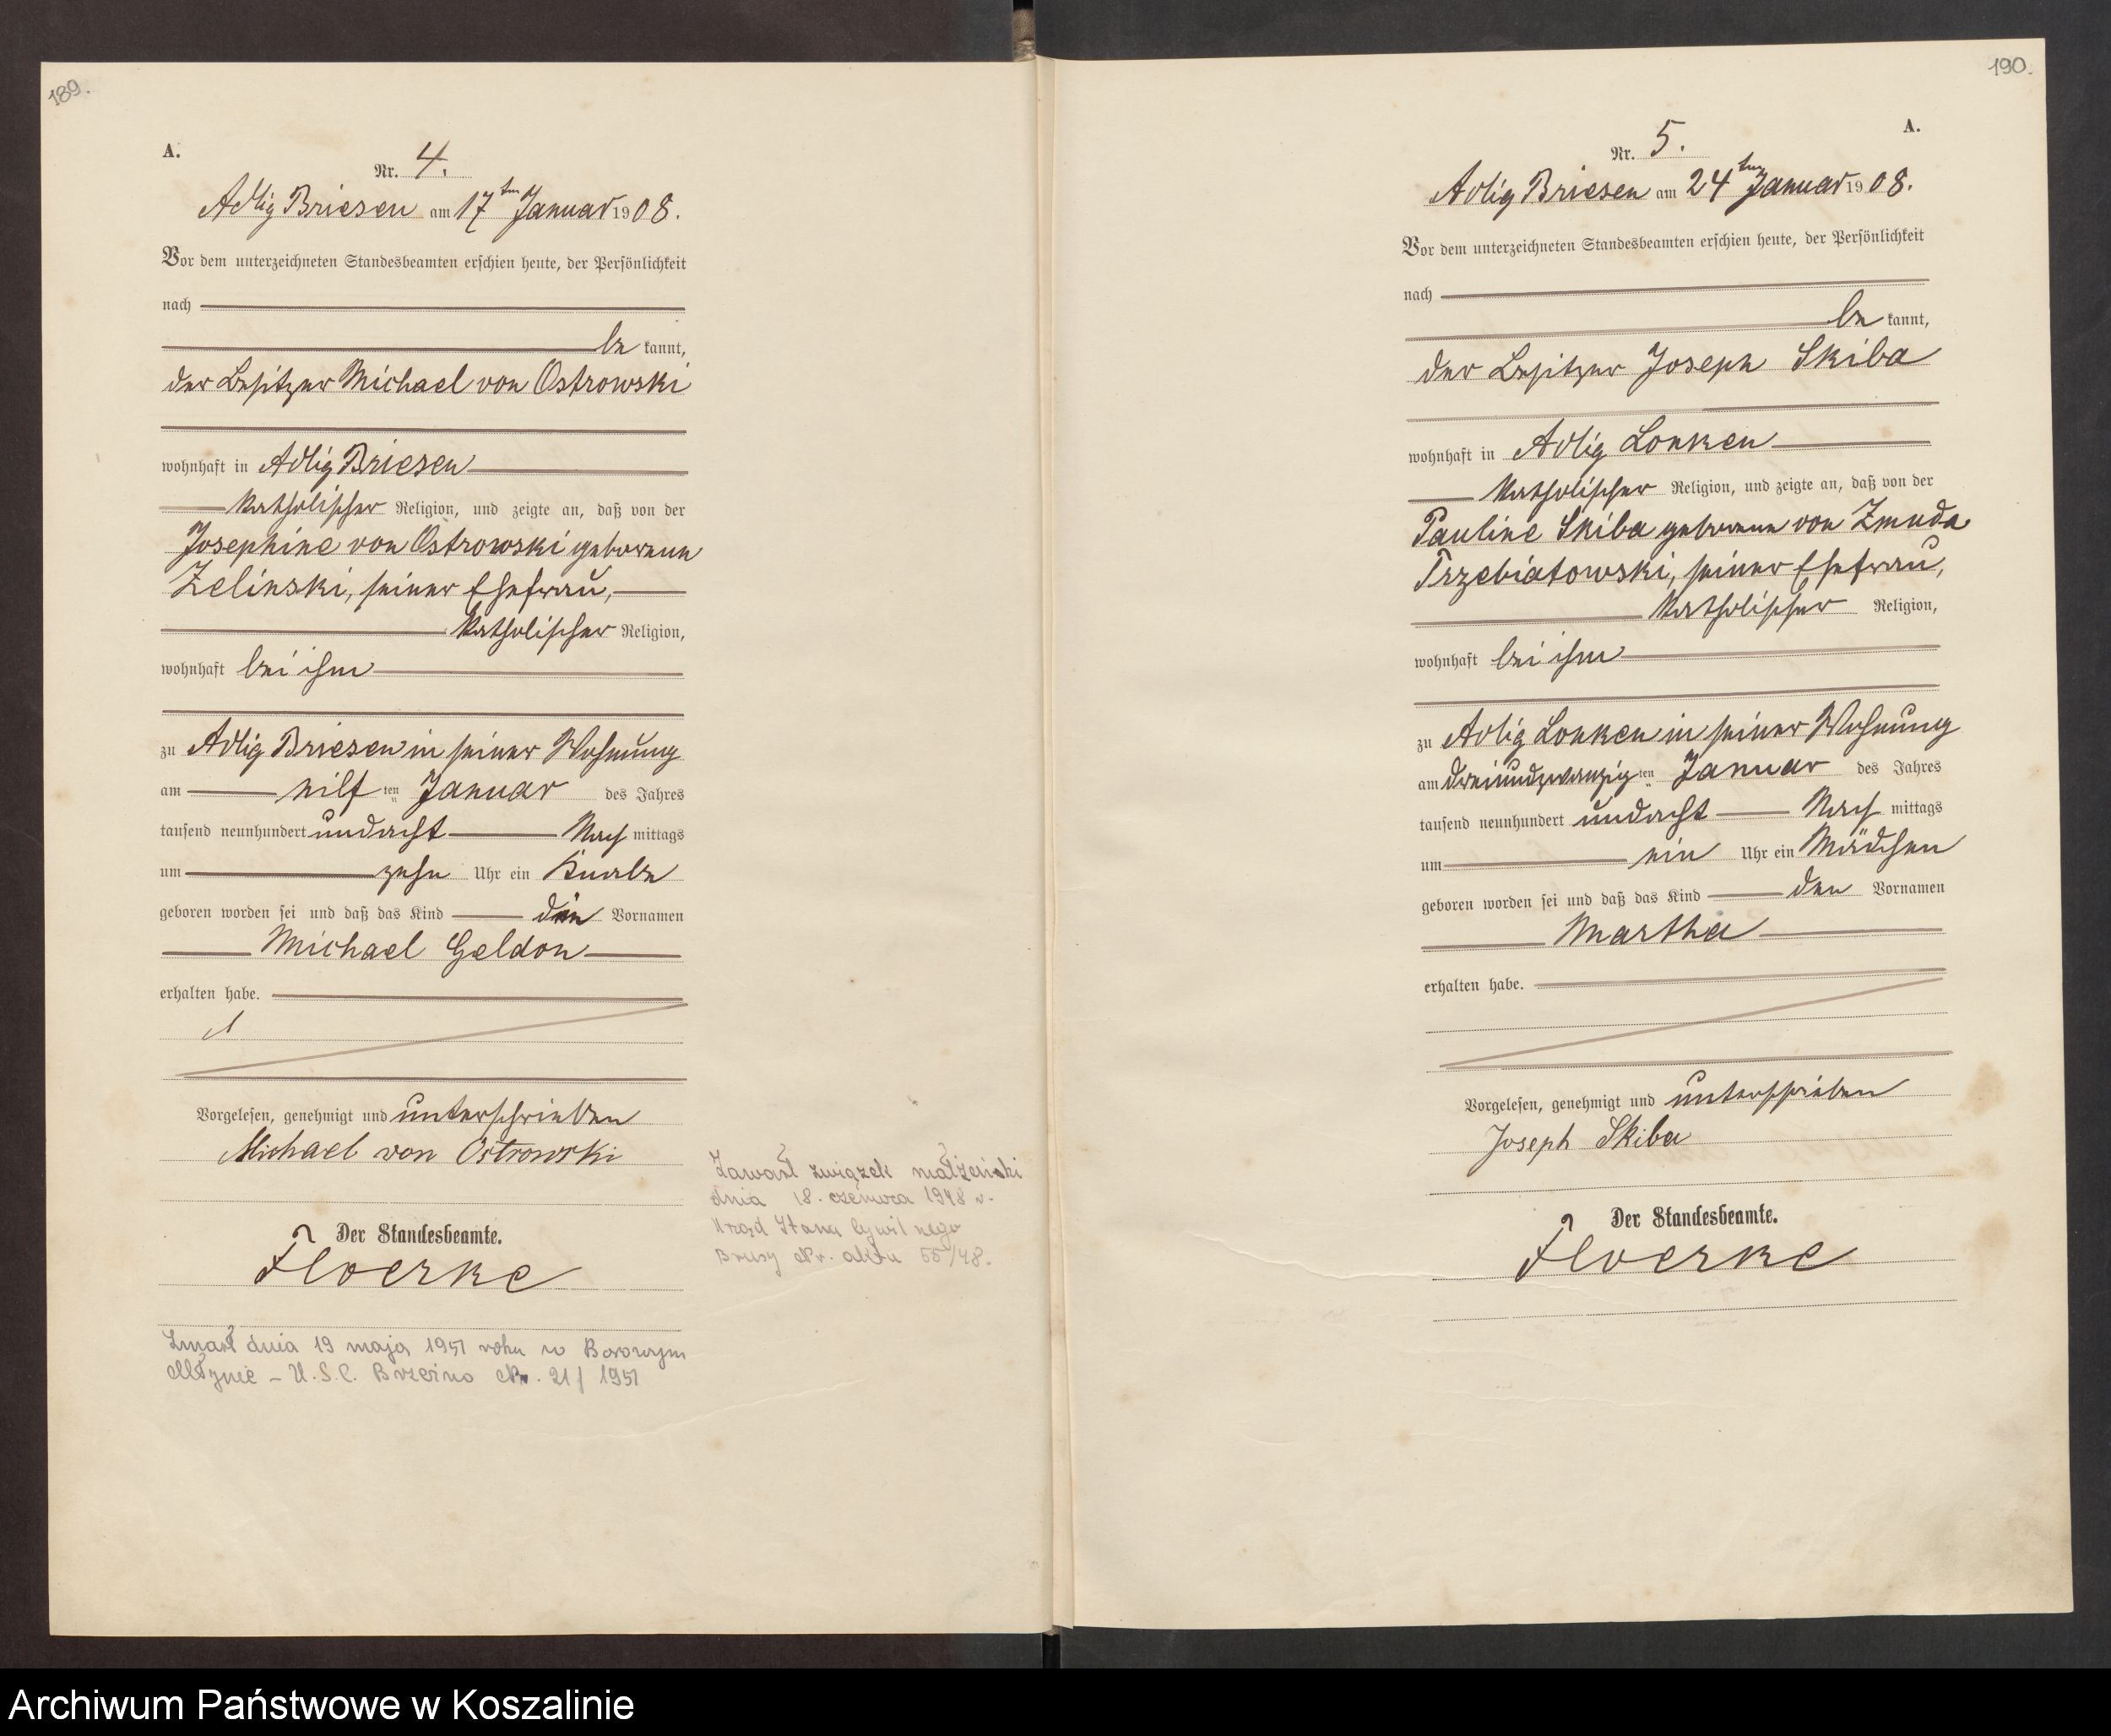 189.
A.
Nr. 4.
Adlig Briesen am 17ten Januar 1908.
Vor dem unterzeichneten Standesbeamten erschien heute, der Persönlichkeit
nach
be kannt,
der Besitzer Michael von Ostrowski
wohnhaft in Adlig Briesen
katholischer Religion, und zeigte an, daß von der
Josephine von Ostrowski geborenen
Zelinski, seiner Ehefrau,
katholischer Religion,
wohnhaft bei ihm
zu Adlig Briesen in seiner Wohnung
am elf ten Januar des Jahres
tausend neunhundert und acht Nach mittags
um zehn Uhr ein Knabe
geboren worden sei und daß das Kind die Vornamen
Michael Geldon
erhalten habe.
Vorgelesen, genehmigt und unterschrieben
Michael von Ostrowski
Der Standesbeamte.
Floerke
Zmarł dnia 19 maja 1951 roku w Borowym
Młynie – U.S.C. Brzeźno Nr. 21/1951
Zawarł związek małżeński
dnia 18. czerwca 1948 r.
Urząd Stanu Cywilnego
Brusy Nr. aktu 55/48.
190.
A.
Nr. 5.
Adlig Briesen am 24ten Januar 1908.
Vor dem unterzeichneten Standesbeamten erschien heute, der Persönlichkeit
nach
be kannt,
der Besitzer Joseph Skiba
wohnhaft in Adlig Lonken
katholischer Religion, und zeigte an, daß von der
Pauline Skiba geborenen von Zmuda
Trzebiatowski, seiner Ehefrau,
katholischer Religion,
wohnhaft bei ihm
zu Adlig Lonken in seiner Wohnung
am dreiundzwanzig ten Januar des Jahres
tausend neunhundert und acht Nach mittags
um ein Uhr ein Mädchen
geboren worden sei und daß das Kind den Vornamen
Martha
erhalten habe.
Vorgelesen, genehmigt und unterschrieben
Joseph Skiba
Der Standesbeamte.
Floerke
Archiwum Państwowe w Koszalinie